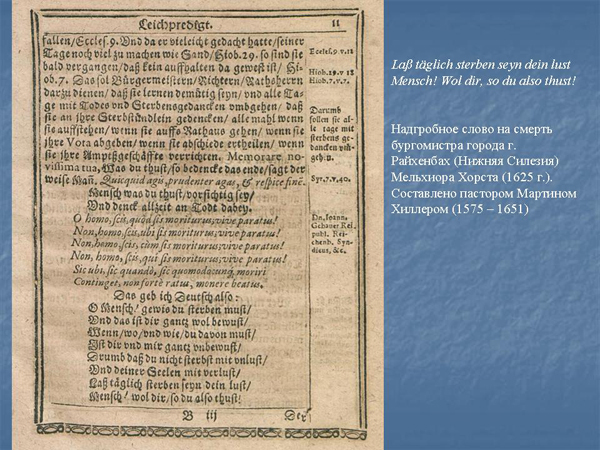 Leichpredigt. 11
fallen/Eccles.9. Und da er vieleicht gedacht hatte/seiner
Tage noch viel zu machen wie Sand/Hiob.29. so sind sie
bald vergangen/daß kein auffhalten da gewest ist/ Hi-
ob.7. Das sol Bürgermeistern/Richtern/Rathsherrn
darzu dienen/daß sie lernen demütig seyn/ vnd alle Ta-
ge mit Todes vnd Sterbensgedancken vmbgehen/ daß
sie an ihre Sterbstündlein gedencken/ alle mahl wenn
sie auffstehen/wenn sie auffs Rathaus gehen/ wenn sie
ihre Vota abgeben/ wenn sie abschiede ertheilen/ wenn
sie ihre Amptsgeschäffte verrichten. Memorare no-
vissima tua, Was du thust/so bedencke das ende/sagt der
weise Mañ. Quicquid agis, prudenter agas, & respice finẽ.
Mensch was du thust/vorsichtig sey/
Und denck allzeit an Todt dabey.
O homo, scis, quòd sis moriturus; vive paratus!
Non, homo, scis, ubi sis moriturus; vive paratus!
Non, homo, scis, cùm sis moriturus; vive paratus!
Non, homo, scis, qui sis moriturus; vive paratus!
Sic ubi, sic quandò, sic quomodocunq, moriri
Continget, non fortè ratus, monere beatus.
Das geb ich Deutsch also:
O Mensch! gewis du sterben must/
Und das ist dir gantz wol bewust/
Wenn/wo/vnd wie/du davon must/
Ist dir vnd mir gantz vnbewust/
Drumb daß du nicht sterbst mit vnlust/
Und deiner Seelen mit verlust/
Laß täglich sterben seyn dein lust/
Mensch! wol dir/so du also thust!
B iij Der
Eccles.9.v.12
Hiob.29.v 18
Hiob.7.v.7.
Darumb
sollen sie al-
le tage mit
sterbens ge-
dancken vm-
geh:n.
Syr.7.v.40.
Dn. Ioann.
Gebauer Rei.
publ. Rei-
chenb. Syn-
dicus, &c.
Laß täglich sterben seyn dein lust
Mensch! Wol dir, so du also thust!
Надгробное слово на смерть
бургомистра города г.
Райхенбах (Нижняя Силезия)
Мельхиора Хорста (1625 г.).
Составлено пастором Мартином
Хиллером (1575 – 1651)